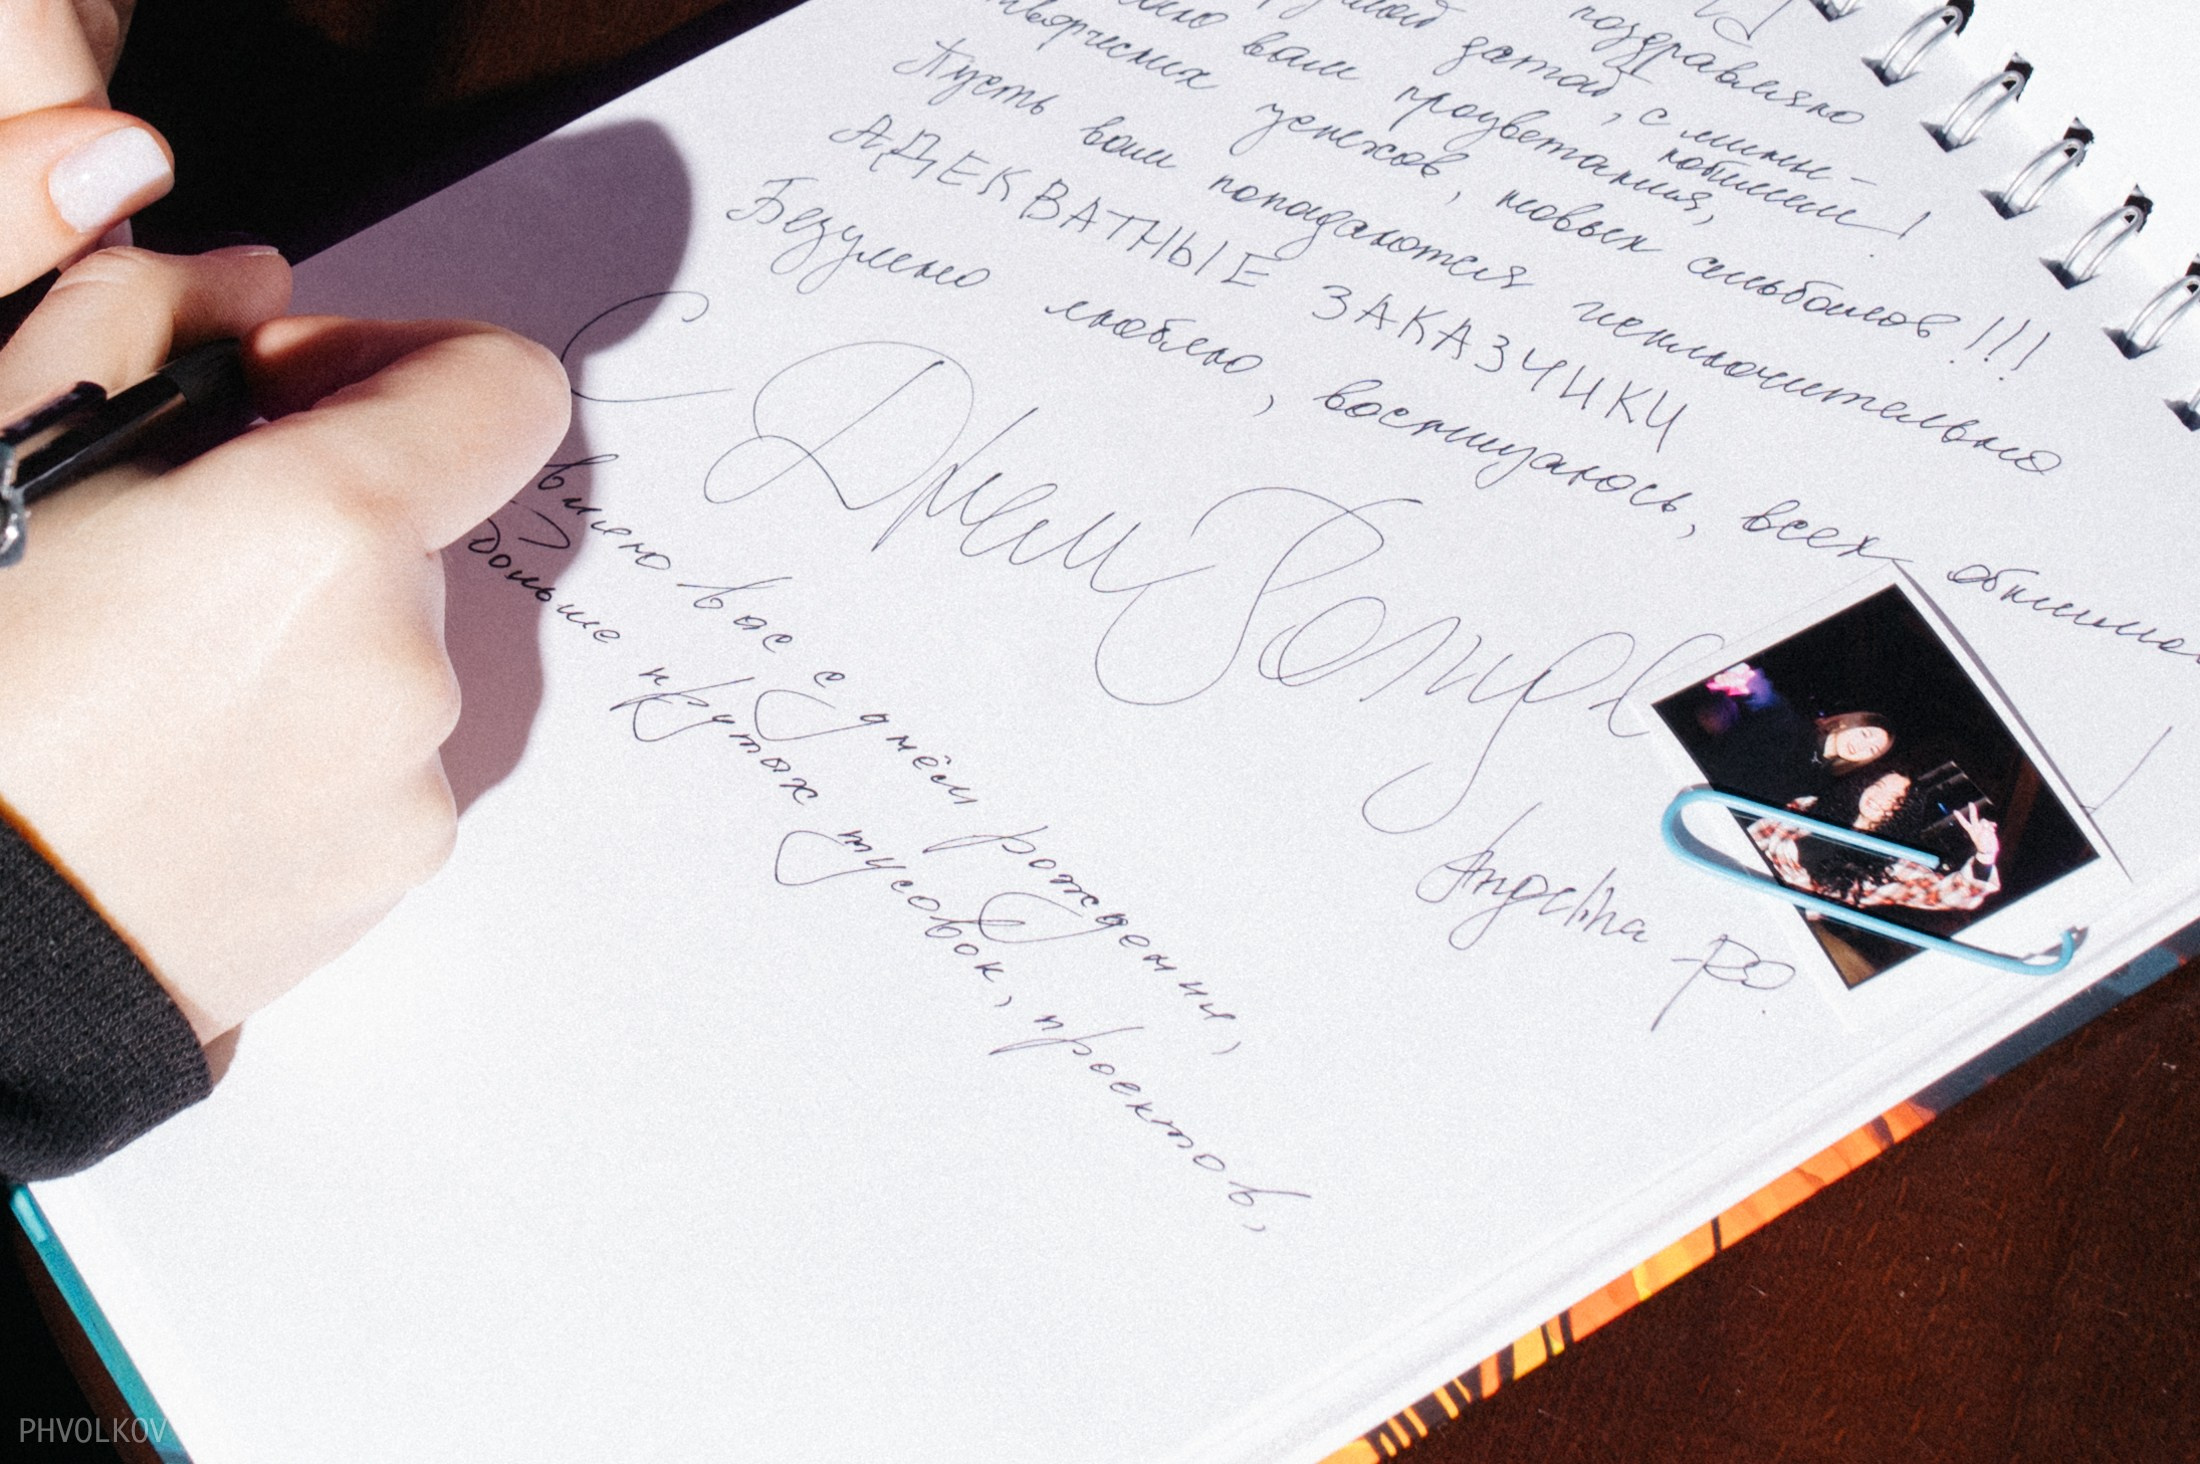 поздравляю
датой, с мини-
юбилеем!
вам процветания,
творческих успехов, новых альбомов!!!
Пусть вам попадаются исключительно
АДЕКВАТНЫЕ ЗАКАЗЧИКИ
Безумно люблю, восхищаюсь, всех обнимаю
С Днем
Angelina
вас с днём рождения,
больше крутых тусовок, проектов,
PHVOLKOV